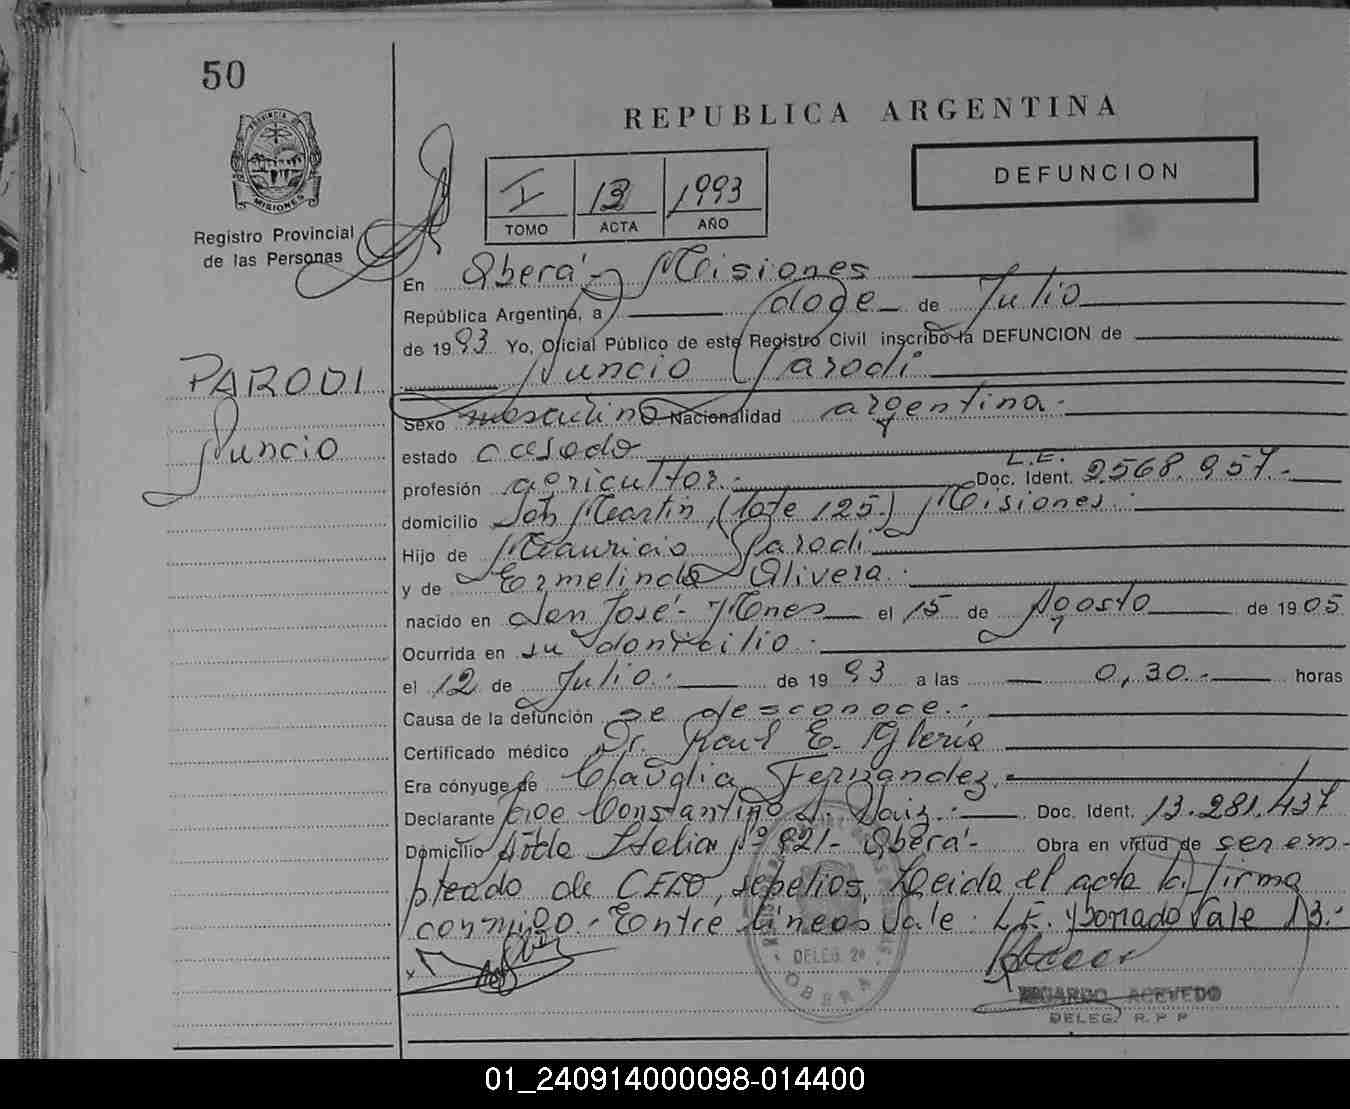 50
REPUBLICA ARGENTINA
DEFUNCION
I 13 1993
TOMO ACTA AÑO
PROVINCIA
MISIONES
Registro Provincial
de las Personas
En Oberá - Misiones
República Argentina, a doce de Julio
de 1993 Yo, Oficial Público de este Registro Civil inscribo la DEFUNCION de
Nuncio Parodi
PARODI
Nuncio
Sexo masculino Nacionalidad argentina.
estado casado
L.E.
profesión agricultor. Doc. Ident. 2568.957.-
domicilio San Martín, (lote 125.) Misiones.
Hijo de Mauricio Parodi
y de Ermelinda Olivera.
nacido en San José - Mnes el 15 de Agosto de 1905
Ocurrida en su domicilio.
el 12 de Julio. de 1993 a las 0,30.- horas
Causa de la defunción se desconoce.-
Certificado médico Dr. Raul E.
Era cónyuge de Claudia Fernandez.
Declarante Jose Constantino Doc. Ident. 13.281.437
Domicilio Nº 821- Oberá- Obra en virtud de ser em-
pleado de CELO, sepelios, Leida el acta la firma
conmigo.- Entre lineas vale: L.E. y borrado vale 13.-
DELEG. 2ª
OBERA
EDUARDO ACEVEDO
DELEG. R. P. P.
01_240914000098-014400